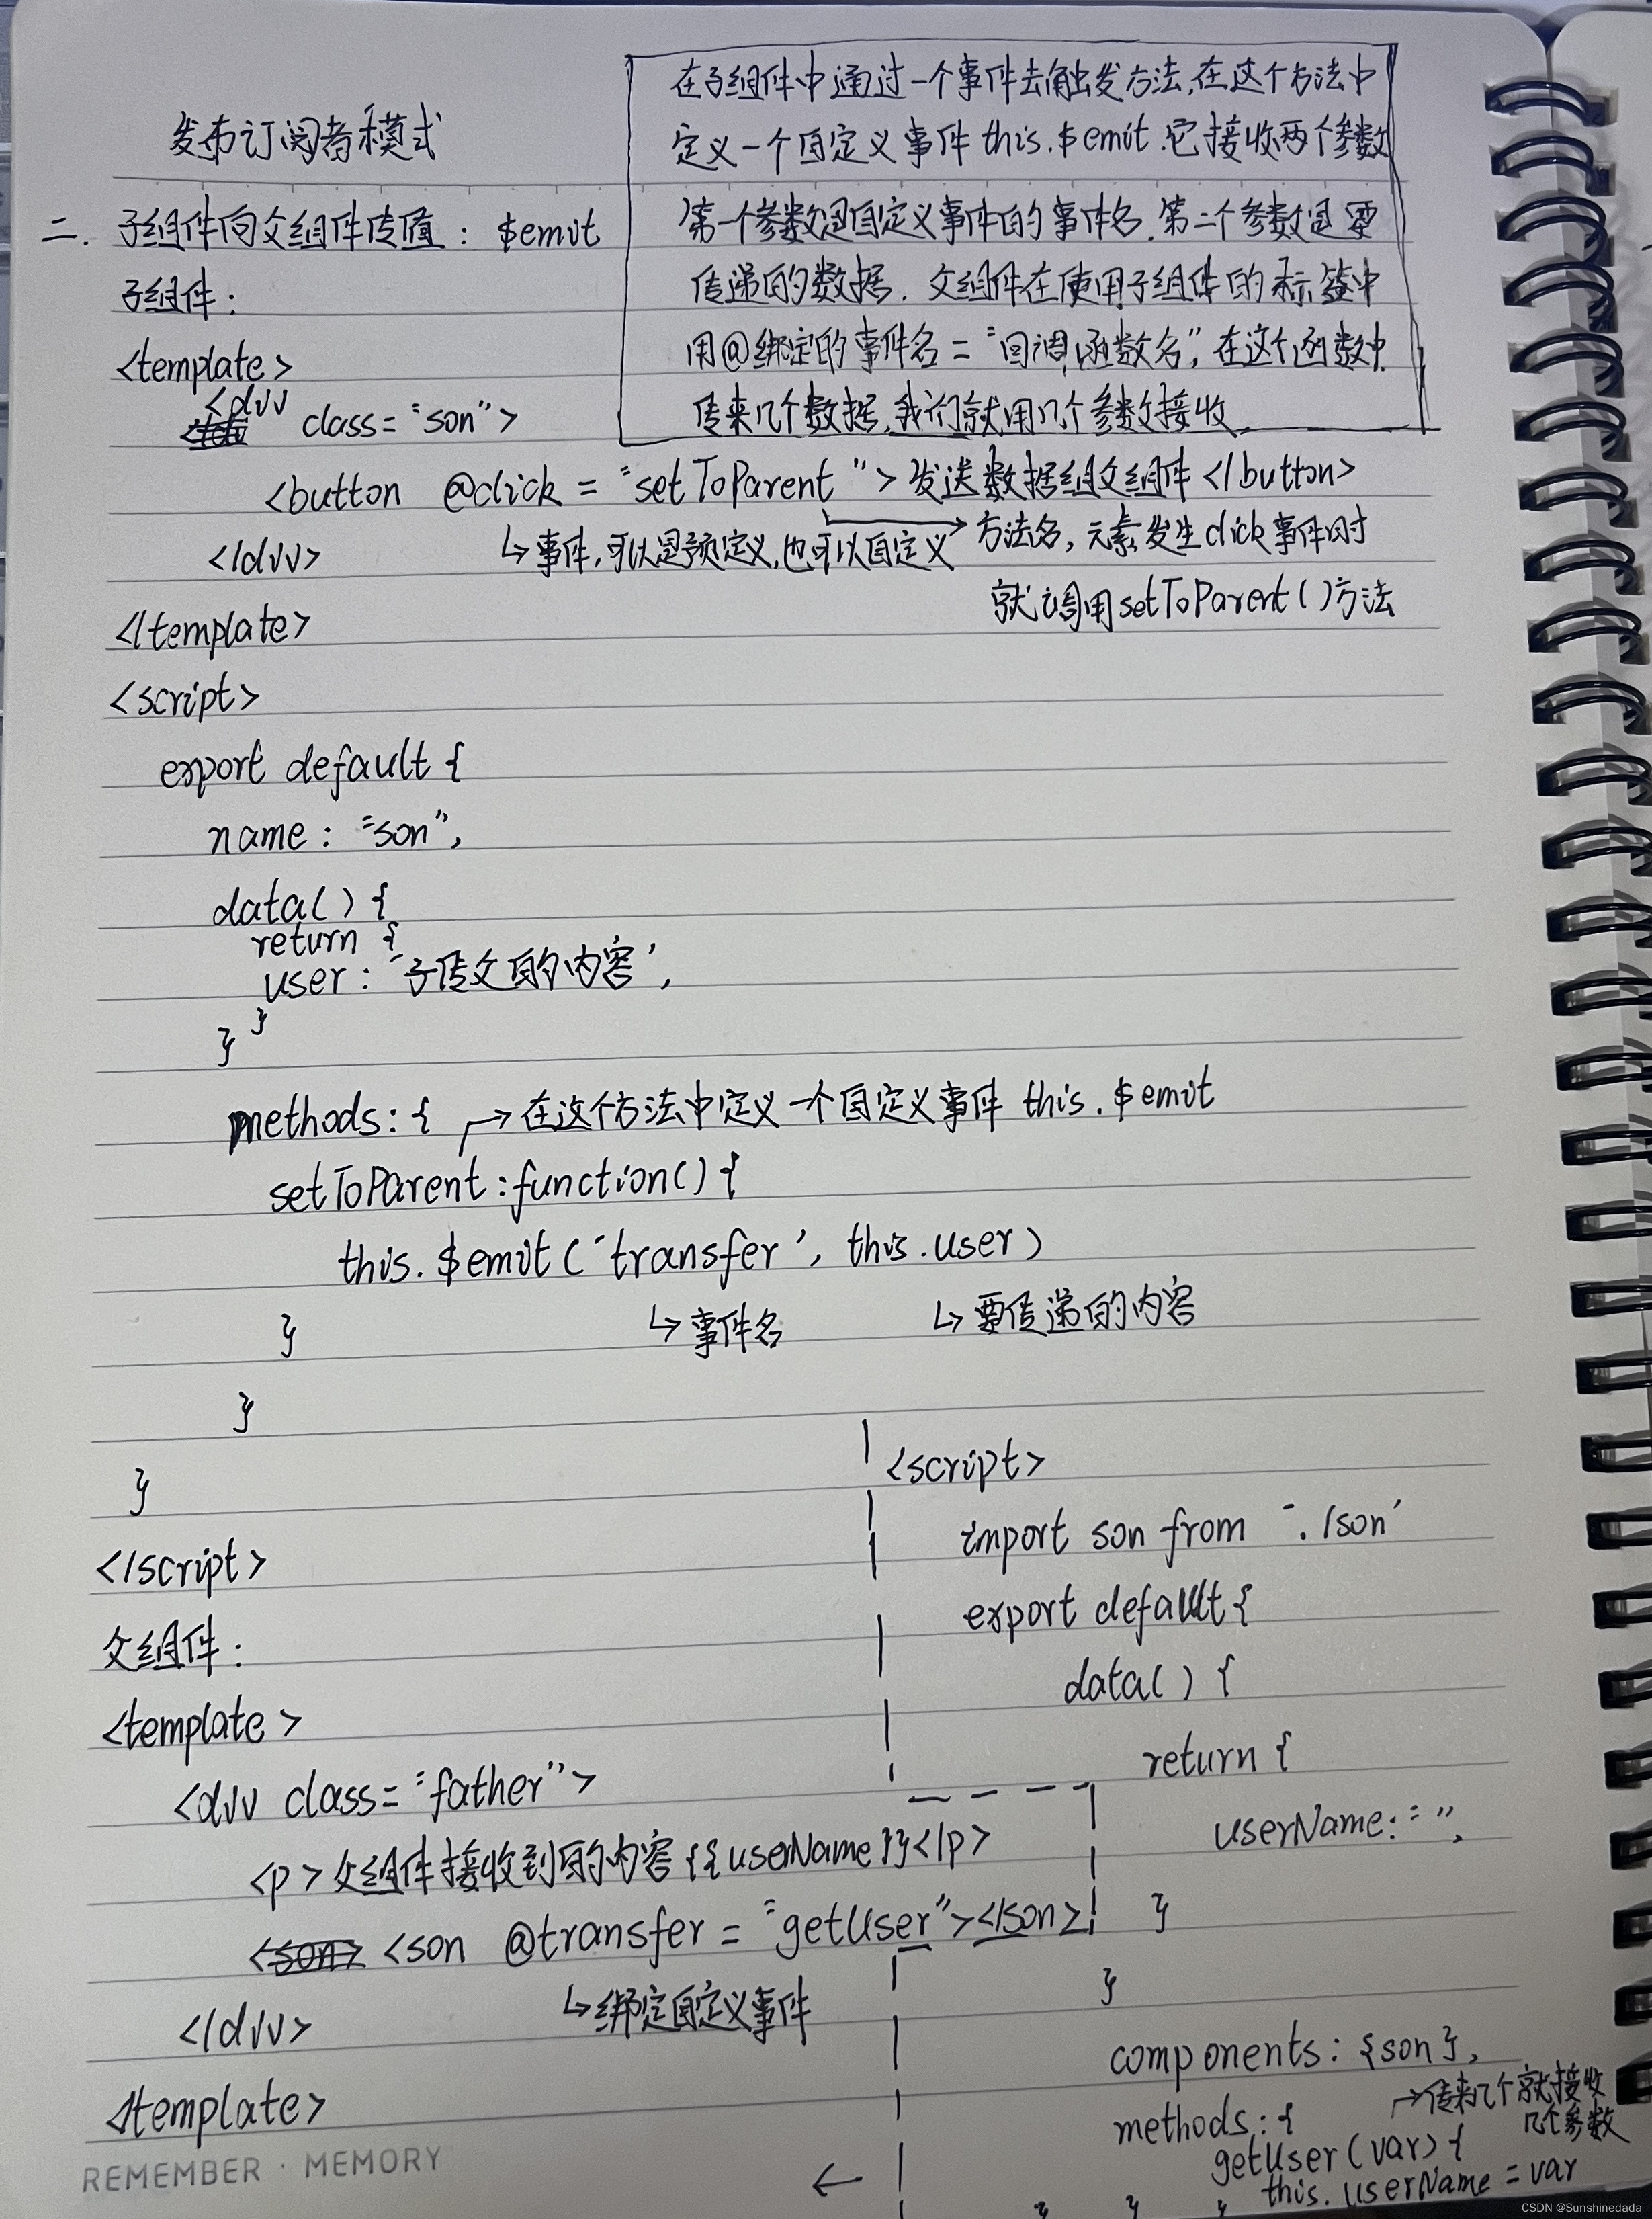 发布订阅者模式
在子组件中通过一个事件去触发方法,在这个方法中
定义一个自定义事件this.$emit.它接收两个参数
第一个参数是自定义事件的事件名.第二个参数是要
传递的数据. 父组件在使用子组件的标签中
用@绑定的事件名="回调函数名",在这个函数中
传来几个数据,我们就用几个参数接收
二. 子组件向父组件传值: $emit
子组件:
<template>
<div class="son">
<button @click="setToParent">发送数据给父组件</button>
↳事件,可以是预定义,也可以自定义
→方法名,元素发生click事件时
就调用setToParent()方法
</div>
</template>
<script>
export default {
name: "son",
data() {
return {
user: '子传父的内容',
}
}
methods: {
→在这个方法中定义一个自定义事件 this.$emit
setToParent:function() {
this.$emit('transfer', this.user)
↳事件名 ↳要传递的内容
}
}
}
</script>
父组件:
<template>
<div class="father">
<p>父组件接收到的内容{{userName}}</p>
<son> <son @transfer="getUser"></son>
↳绑定自定义事件
</div>
</template>
REMEMBER · MEMORY
←
<script>
import son from './son'
export default {
data() {
return {
userName: "",
}
}
components: {son},
methods: {
→传来几个就接收
几个参数
getUser(var) {
this.userName = var
} } }
CSDN @Sunshinedada